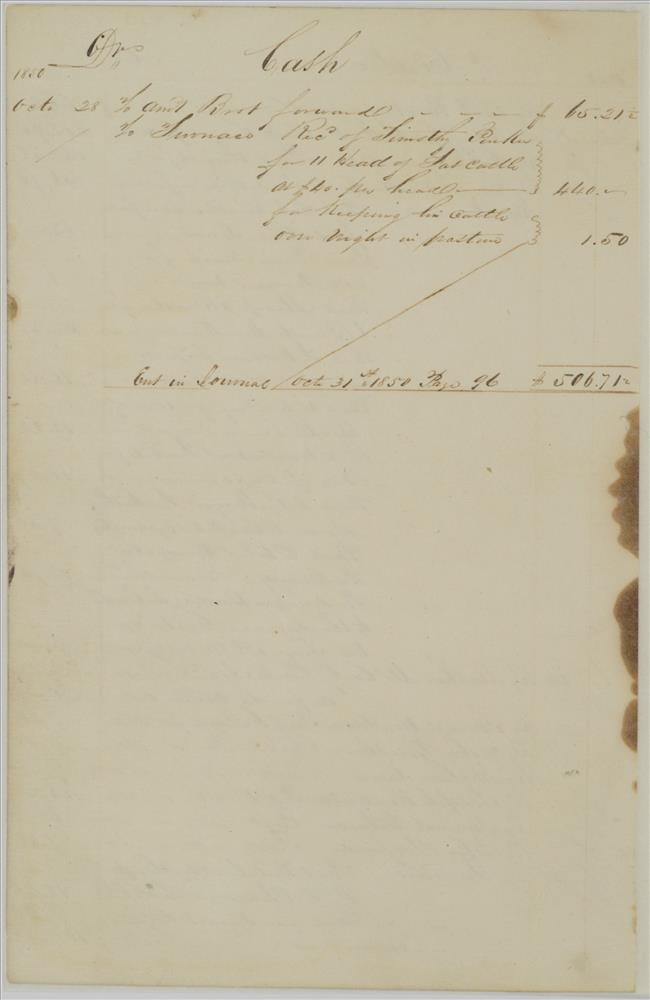 Drs Cash
1850
Octo 28 To amt Brot forward $ 65.21½
To Furnace Recd of Timothy
for 11 Head of Fat cattle
at $40. per head 440.
for Keeping his cattle
one Night in pasture 1.50
Ent in Journal Octo 31st 1850 Page 96 $ 506.71½